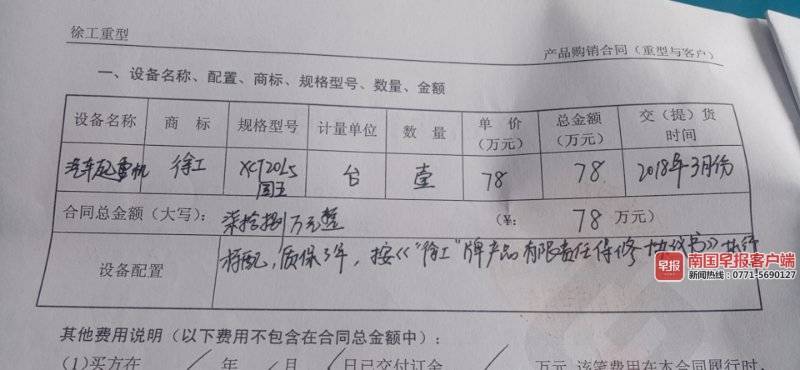 徐工重型
产品购销合同（重型与客户）
一、设备名称、配置、商标、规格型号、数量、金额
设备名称 商 标 规格型号 计量单位 数 量 单 价（万元） 总金额（万元） 交（提）货时间
汽车起重机 徐工 XCT20L5 国五 台 壹 78 78 2018年3月份
合同总金额（大写）： 柒拾捌万元整 （¥： 78 万元）
设备配置 标配，质保3年，按《"徐工"牌产品有限责任保修协议书》执行
早报 南国早报客户端
新闻热线：0771-5690127
其他费用说明（以下费用不包含在合同总金额中）：
(1)买方在 年 月 日已交付订金 万元，该笔费用在本合同履行时，